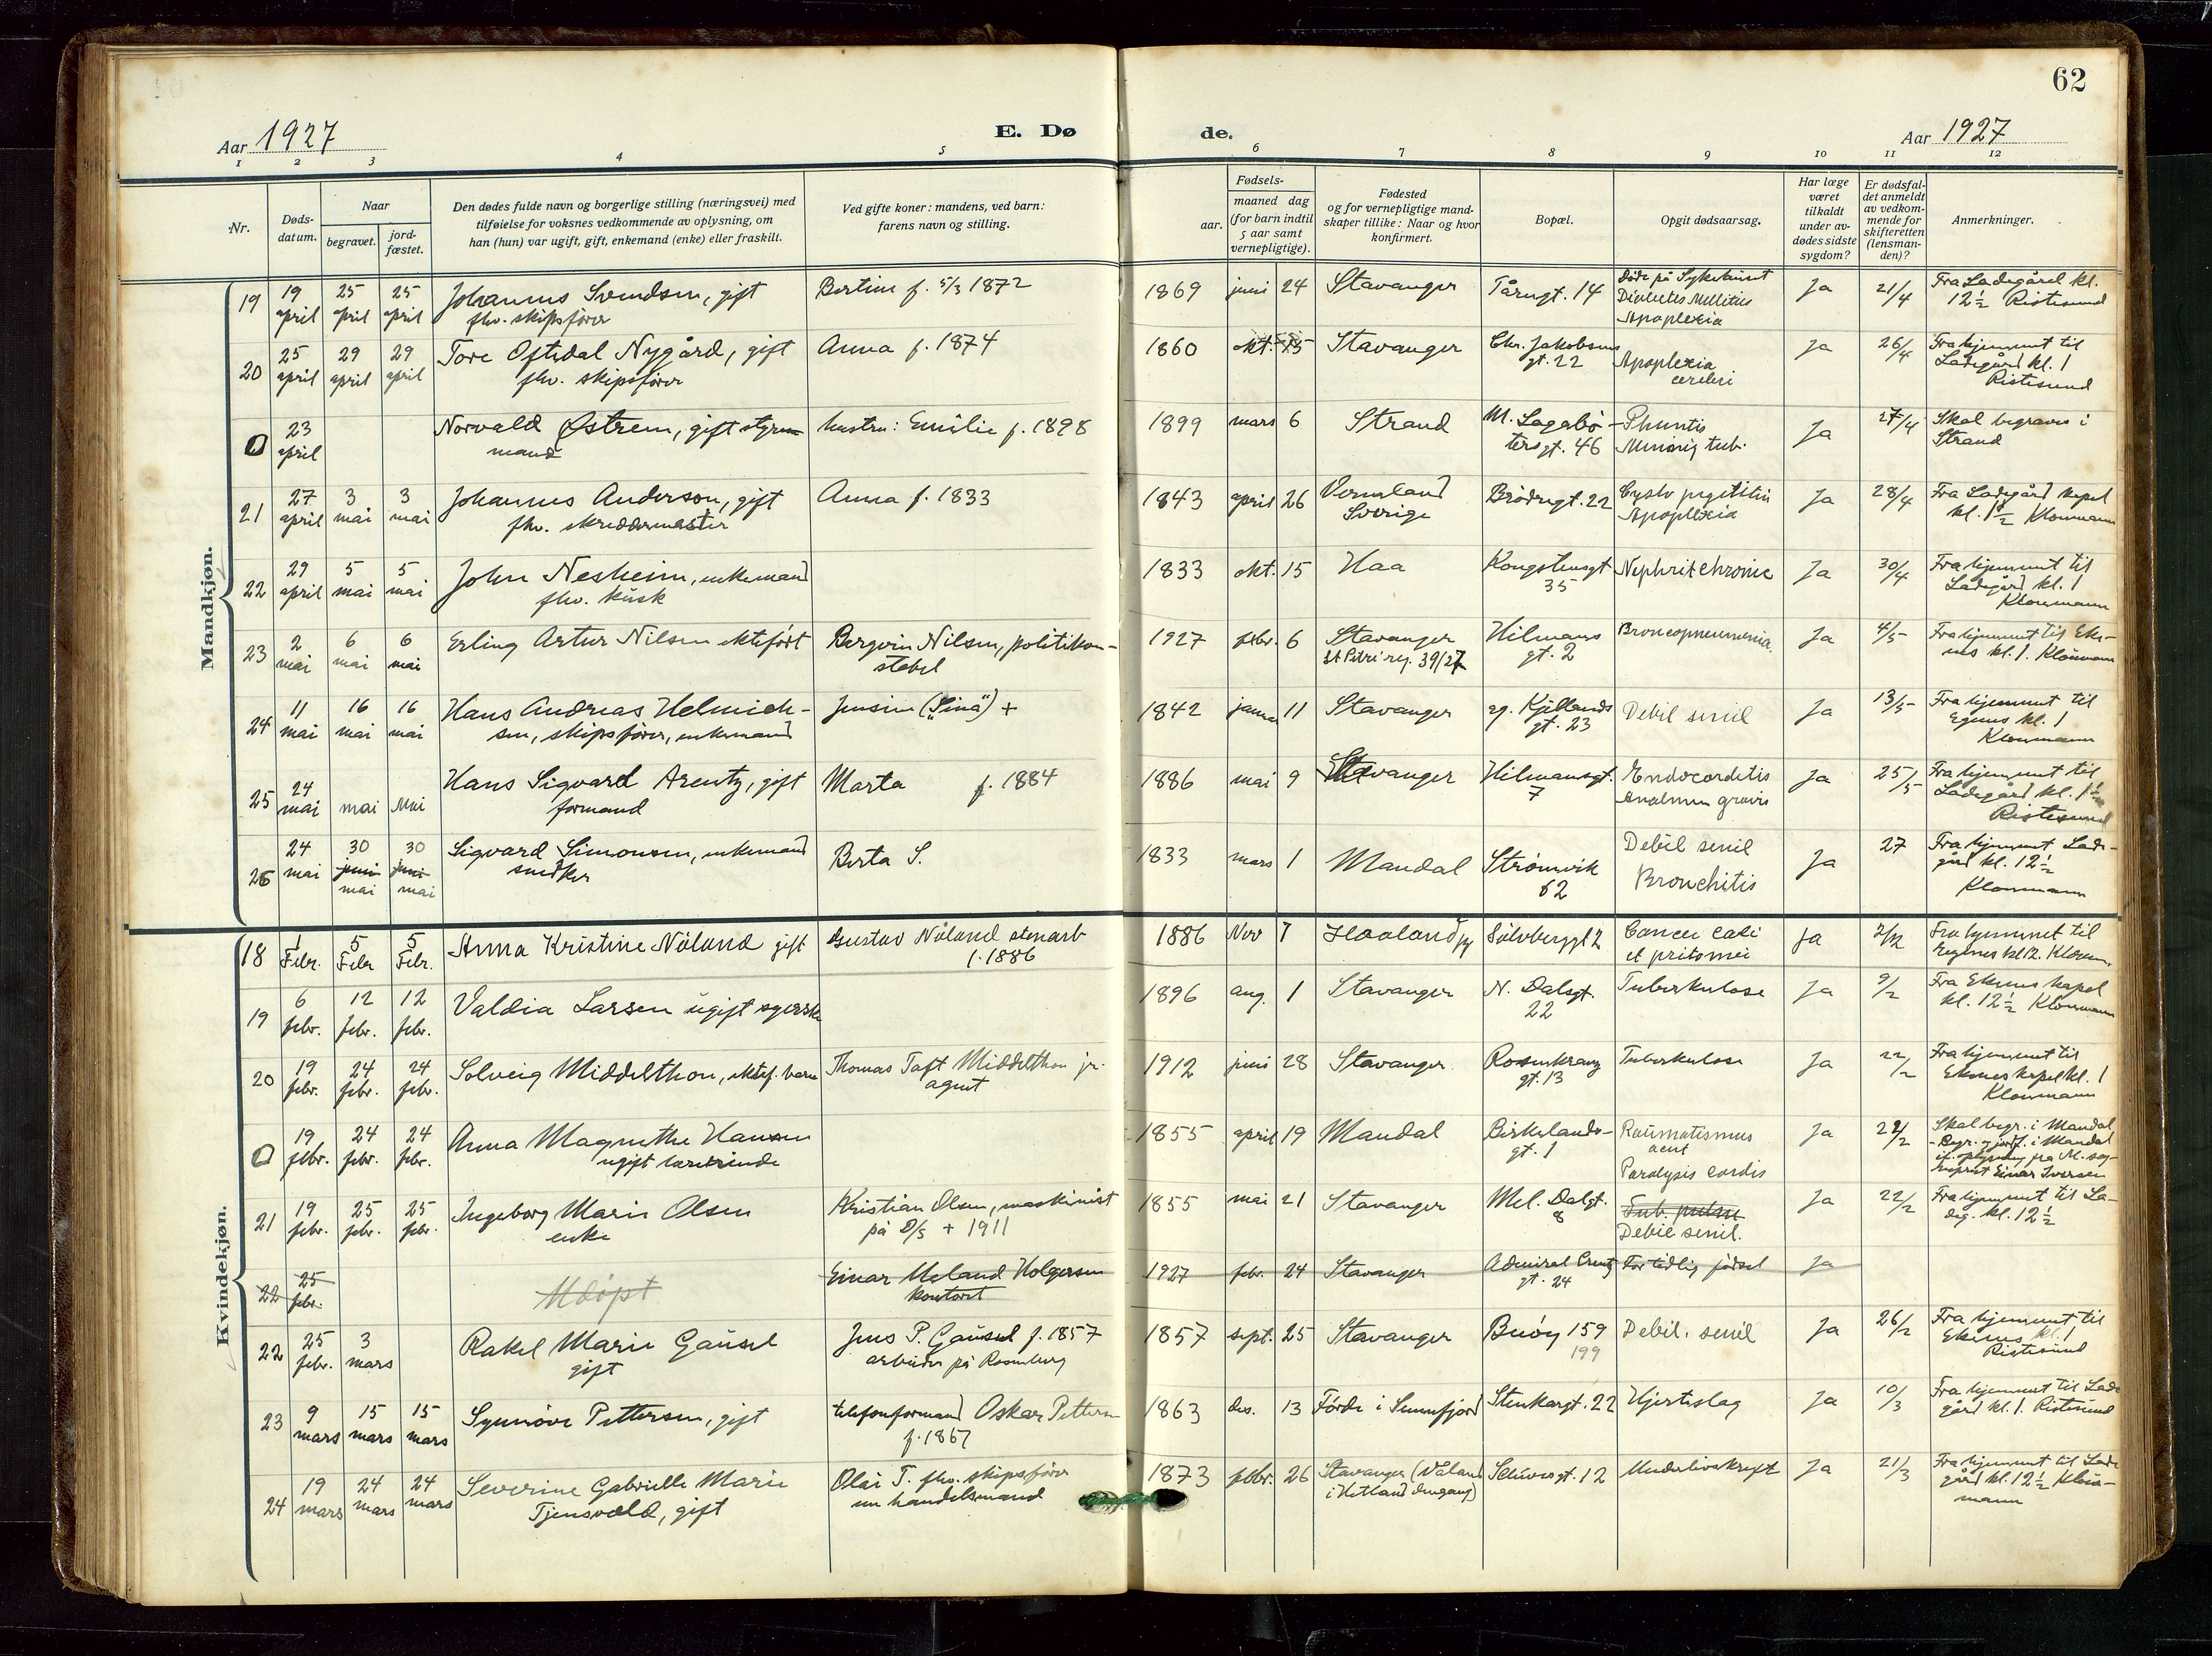 62
Aar 1927
E. Dø
de.
Aar 1927
1 2 3 4 5 6 7 8 9 10 11 12
Nr.
Døds-
datum.
Naar
begravet.
jord-
fæstet.
Den dødes fulde navn og borgerlige stilling (næringsvei) med
tilføielse for voksnes vedkommende av oplysning, om
han (hun) var ugift, gift, enkemand (enke) eller fraskilt.
Ved gifte koner: mandens, ved barn:
farens navn og stilling.
Fødsels-
aar.
maaned dag
(for barn indtil
5 aar samt
vernepligtige).
Fødested
og for vernepligtige mand-
skaper tillike: Naar og hvor
konfirmert.
Bopæl.
Opgit dødsaarsag.
Har læge
været
tilkaldt
under av-
dødes sidste
sygdom?
Er dødsfal-
det anmeldt
av vedkom-
mende for
skifteretten
(lensman-
den)?
Anmerkninger.
Mandkjøn.
19 19 april 25 april 25 april Johannes Svendsen, gift
fhv. skipsfører
Bertine f. 5/3 1872
1869 juni 24 Stavanger Tårngt. 14 Døde på Sykehuset
Diabetes Mellitus
Apoplexia
Ja 21/4 Fra Ladegård kl.
12½ Ristesund
20 25 april 29 april 29 april Tore Oftedal Nygård, gift
fhv. skipsfører
Anna f. 1874
1860 okt. 15 Stavanger Chr. Jakobsens
gt. 22
Apoplexia
cerebri
Ja 26/4 Fra hjemmet til
Ladegård kl. 1
Ristesund
0 23 april Norvald Østrem, gift styrm
mand
hustru: Emilie f. 1898
1899 mars 6 Strand M. Lagabø-
tersgt. 46
Ja 27/4 Skal begraves i
Strand
21 27 april 3 mai 3 mai Johannes Anderson, gift
fhv. skreddermester
Anna f. 1833
1843 april 26 Vermland
Sverige
Brødregt. 22
Apoplexia
Ja 28/4 Fra Ladegård kapel
kl. 1½ Klonmann
22 29 april 5 mai 5 mai John Nesheim, enkemand
fhv. kusk
1833 okt. 15 Haa Kongstensgt
35
Nephrit chronic Ja 30/4 Fra hjemmet til
Ladegård kl. 1
Klonmann
23 2 mai 6 mai 6 mai Erling Artur Nilsen ektefødt
Bergvin Nilsen, politikon-
stabel
1927 febr. 6 Stavanger
St Petri reg. 39/27
Hilmans
gt. 2
Broncopneumonia. Ja 4/5 Fra hjemmet til Eke-
nes kl. 1. Klonmann
24 11 mai 16 mai 16 mai Hans Andreas Helmich-
sen, skipsfører, enkemand
Jensine ("Sina") +
1842 januar 11 Stavanger ag. Kjellands
gt. 23
Debil senil Ja 13/5 Fra hjemmet til
Egenes kl. 1
Klonmann
25 24 mai mai Mai Hans Sigvard Arentz, gift
formand
Marta f. 1884
1886 mai 9 Stavanger Hilmansgt.
7
Endocarditis
Ja 25/5 Fra hjemmet til
Ladegård kl. 1½
Ristesund
26 24 mai 30 juni mai 30 juni mai Sigvard Simonsen, enkemand
snedker
Berta S.
1833 mars 1 Mandal Strømvik
62
Debil senil
Bronchitis
Ja 27 Fra hjemmet Lade-
gård kl. 12½
Klonmann
Kvindekjøn.
18 1 Febr. 5 Febr 5 Febr. Anna Kristine Nåland gift
Gustav Nåland stenarb
f. 1886
1886 Nov 7 Haaland Sølvberggt 2
Ja 2/2 Fra hjemmet til
Egenes kl 12. Klonm.
19 6 febr. 12 febr. 12 febr. Valdia Larsen ugift syerske
1896 aug. 1 Stavanger N. Dalsgt.
22
Tuberkulose Ja 9/2 Fra Ekenes kapel
kl. 12½ Klonmann
20 19 febr. 24 febr. 24 febr. Solveig Middelthon, ektef. barn
Thomas Taft Middelthon jr.
agent
1912 juni 28 Stavanger Rosenkranz
gt. 13
Tuberkulose Ja 22/2 Fra hjemmet til
Ekenes kapel kl. 1
Klonmann
0 19 febr. 24 febr. 24 febr. Anna Magnethe Hansen
ugift lærerinde
1855 april 19 Mandal Birkelands-
gt. 1
Raumatismus
acut
Paralysis cordis
Ja 22/2 Skal begr. i Mandal
- Begr. og jordf. i Mandal
if. oplysning fra M. sog-
neprest Einar Iversen
21 19 febr. 25 febr. 25 febr. Ingeborg Marie Olsen
enke
Kristian Olsen, maskinist
på D/s + 1911
1855 mai 21 Stavanger Mel. Dalgt.
8
Tub. pulm.
Debil senil.
Ja 22/2 Fra hjemmet til La-
deg. kl. 12½
22 25 febr. Udøpt
Einar Meland Holgersen
kontorist
1927 febr. 24 Stavanger Admiral Cruys
gt. 24
For tidlig fødsel Ja
22 25 febr. 3 mars Rakel Marie Gausel
gift
Jens P. Gausel f. 1857
arbeider på Rosenberg
1857 sept. 25 Stavanger Buøy 159
199
Debil. senil Ja 26/2 Fra hjemmet til
Ekenes kl. 1
Ristesund
23 9 mars 15 mars 15 mars Synnøve Pettersen, gift
telefonformand Oskar Pettersen
f. 1867
1863 des. 13 Førde i Sunnfjord Stenkargt. 22 Hjerteslag Ja 10/3 Fra hjemmet til Lade
gård kl. 1. Ristesund
24 19 mars 24 mars 24 mars Severine Gabrielle Marie
Tjensvold, gift
Olai T. fhv. skipsfører
nu handelsmand
1873 febr. 26 Stavanger (Våland
i Hetland dengang)
gt. 12 Underlivskreft Ja 21/3 Fra hjemmet til Lade
gård kl. 12½ Klon-
mann